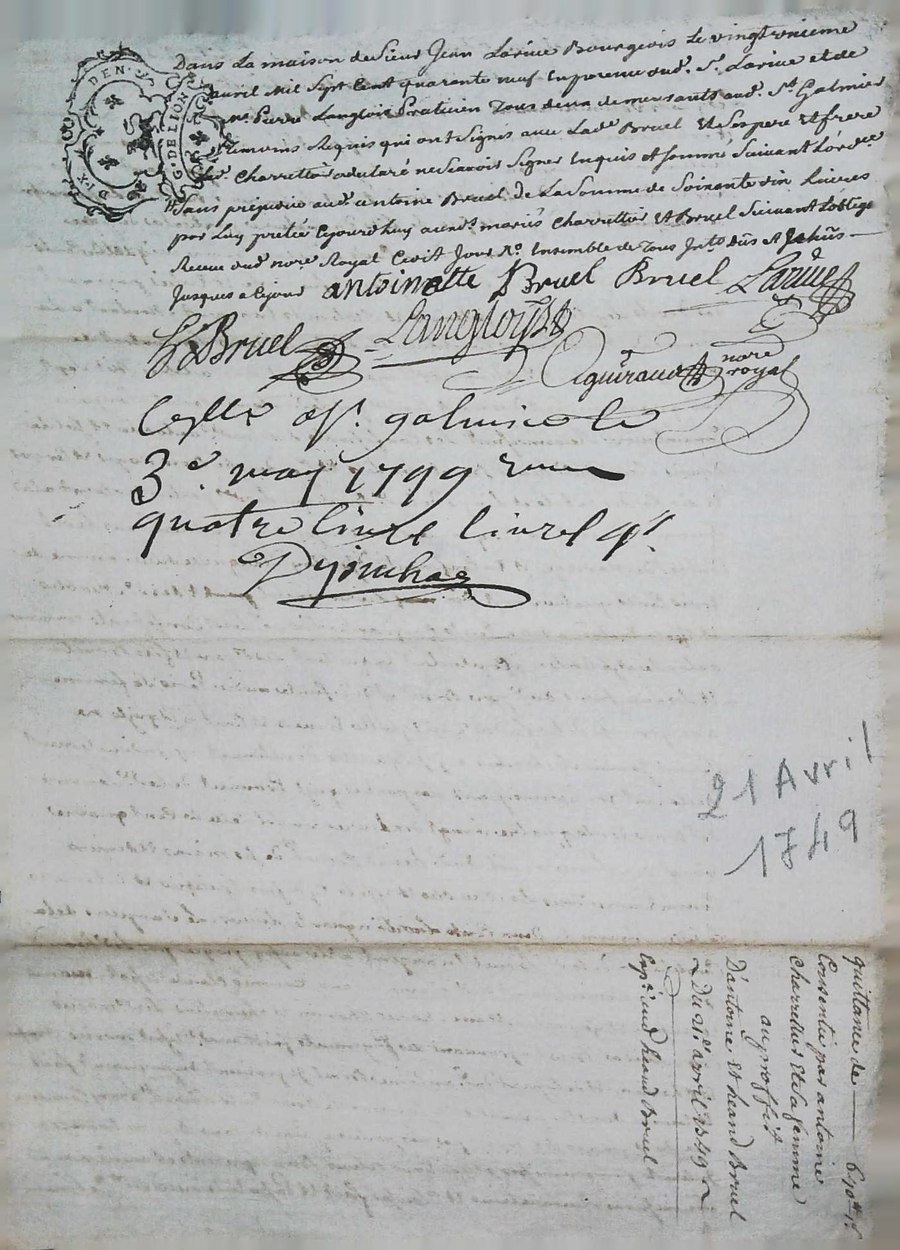 DEN. 9ˢ
G. DE LION
Dans La maison du Sieur Jean Larive Bourgeois Le vingtunieme
avril Mil Sept Cent quarante neuf En presence dud. Sʳ. Larive et de
Mᵉ. Pierre Langlois Praticien Tous deux demeurants aud. Sᵗ Galmier
Temoins Requis qui ont Signés avec Lade Bruel Et Ses pere Et frere
Led. Charretier a declaré ne Scavoir Signer Enquis et Sommé Suivant Lordᶜᵉ
Sans prejudice aud. antoine Bruel de La Somme de Soixante dix Livres
par Luy pretée Cejourdhuy auxd. mariés Charretier Et Bruel Suivant Lobligᵒ
Receue dud noʳᵉ Royal Cedit Jour Ensemble de Tous Intᵗˢ dûs et Echûs
Jusques a Cejour antoinette Bruel Bruel Larive
Bruel Langlois
noʳᵉ
royal
galmier le
3ᵉ. may 1749
quatre livre livrel
21 Avril
1749
quittance de
Consentie par antoine
Charretier Et Sa femme
au proffit
D'antoine Et Jeand Bruel
Du 21ᵉ avril 1749
Expᵉ. aud Jeand Bruel